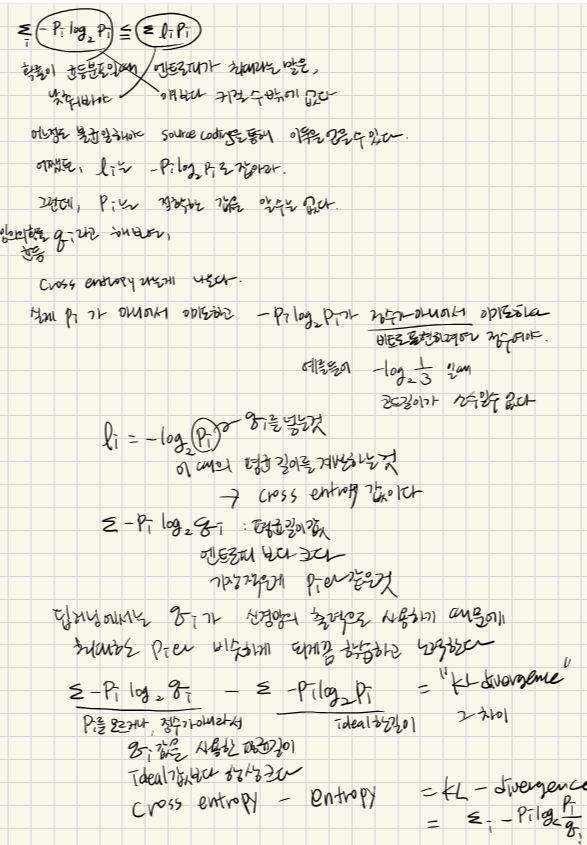 Σ_i -Pi log₂ Pi ≦ Σ li Pi
확률이 균등분포일때 엔트로피가 최대라는 말은,
낮춰봐야 얘보다 커질 수밖에 없다
어느정도 불균일해야 source coding을 통해 이득을 얻을 수 있다.
어쨌든, li는 -Pi log₂ Pi로 잡아라.
그런데, Pi는 정확하는 값을 알수는 없다.
임의의 확률 qi라고 해보면,
균등
cross entropy라는게 나온다.
실제 Pi가 아니어서 이기도하고 -Pi log₂ Pi가 정수가 아니어서 이기도하고
비트로 표현하려면 정수여야.
예를들어 -log₂ 1/3 일때
코드길이가 소수일수 없다
li = -log₂(Pi) qi를 넣는것
이 때의 평균 길이를 계산하는 것
→ cross entropy 값이다
Σ -Pi log₂ qi : 평균길이값
엔트로피 보다 크다
가장 작은게 Pi와 같은것
딥러닝에서는 qi가 신경망의 출력으로 사용하기 때문에
최대한 Pi와 비슷하게 되게끔 학습하고 노력한다
Σ -Pi log₂ qi - Σ -Pi log₂ Pi = "KL-divergence"
Pi를 모르거나, 정수가 아니라서 ideal한길이 그 차이
qi값을 사용한 평균길이
Ideal값보다 항상크다
cross entropy - entropy = KL-divergence
= Σ_i -Pi log₂ Pi/qi